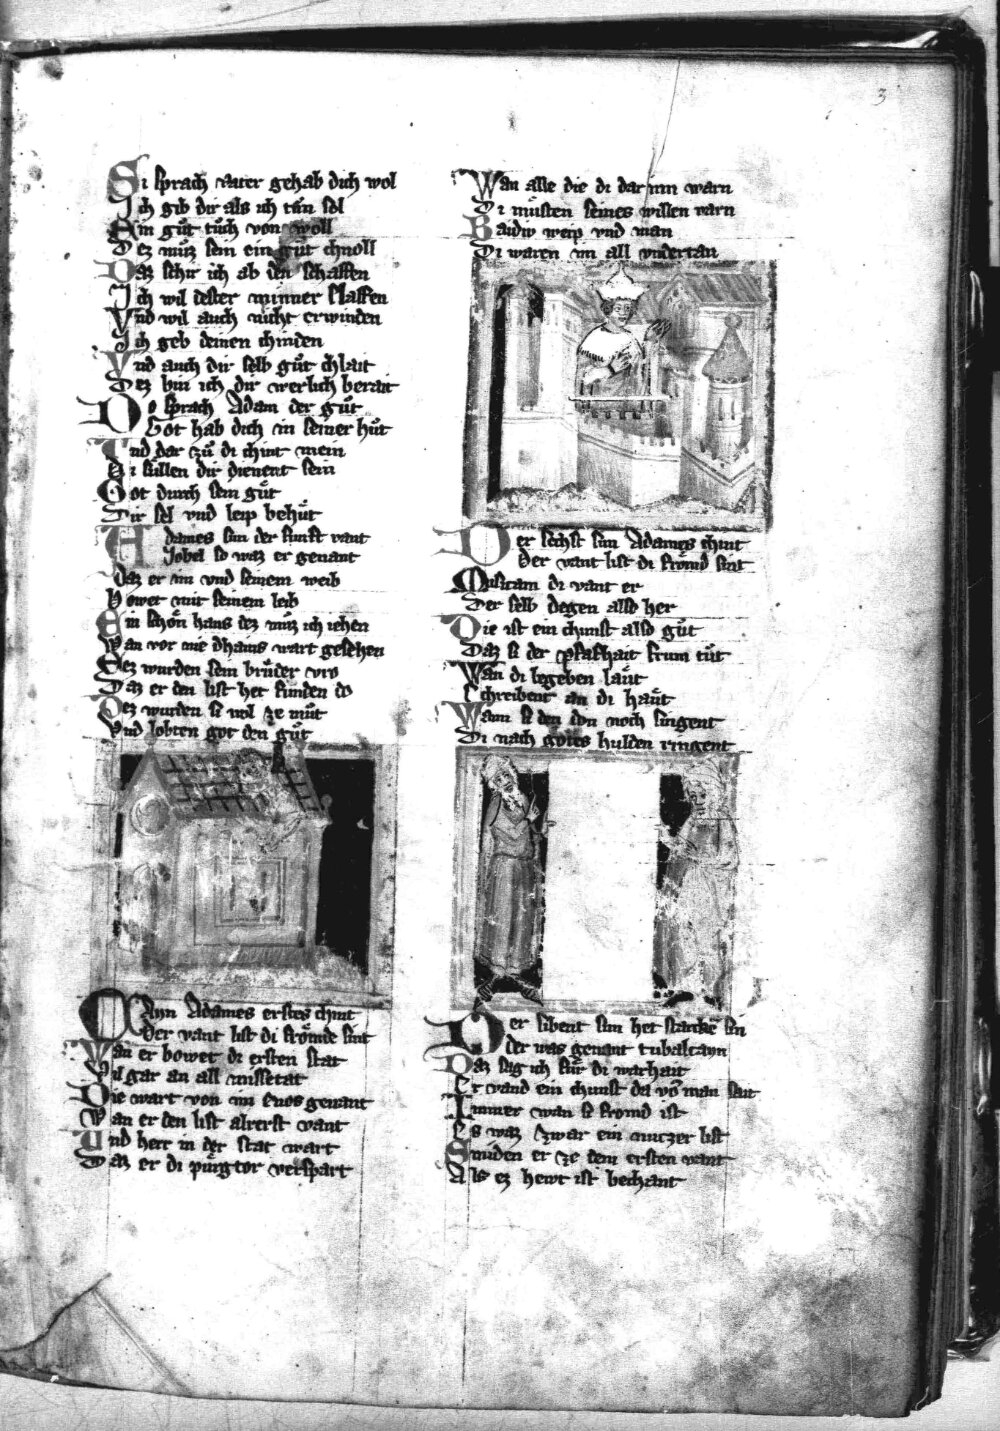 3
Si sprach vaver gehab dich wol
Ich gib dir als ich tůn sol
Ein gůt tůch von woll
Dez můz sein ein gůt chnoll
Daz schir ich ab den schaffen
Ich wil dester minner slaffen
Vnd wil auch nicht erwinden
Ich geb deinen chinden
Vnd auch dir selb gůt chlait
Dez bin ich dir werlich berait
Do sprach Adam der gůt
Got hab dich in seiner hůt
Vnd dar zů di chint mein
Di sullen dir dienent sein
Got durch sein gůt
Dir sel vnd leip behůt
Adames sun der funft vant
Jobel so waz er genant
Daz er im vnd seinem weib
Bowet mit seinem leib
Ein schon haus dez můz ich iehen
Wan vor nie dhains wart gesehen
Dez wurden sein brůder vro
Daz er den list het funden do
Dez wurden si wol ze můt
Vnd lobten got den gůt
Kayn Adames erstes chint
Der vant list di frömde sint
Wan er bowet di ersten stat
Vil gar an all missetat
Die wart von im Enos genant
Wan er den list alrerst vant
Vnd herr in der stat wart
Daz er di purgtor verspart
Wan alle die di dar inn warn
Di můsten seines willen varn
Baidiv weip vnd man
Di waren im all vndertan
Der sechst sun Adames chint
Der vant list di frömd sint
Musicam di vant er
Der selb degen also her
Die ist ein chunst also gůt
Daz si der phafhait frum tůt
Wan di legeben laůt
Schreibent an di haůt
Wann si den don noch singent
Di nach gotes hulden ringent
Der sibent sun het starche sin
Der was genant tubalcayn
Daz sag ich fůr di warhait
Er vand ein chunst da vo man sait
Immer wan si fromd ist
Es waz zwar ein nutzer list
Smiden er ze dem ersten vant
Als ez hewt ist bechant